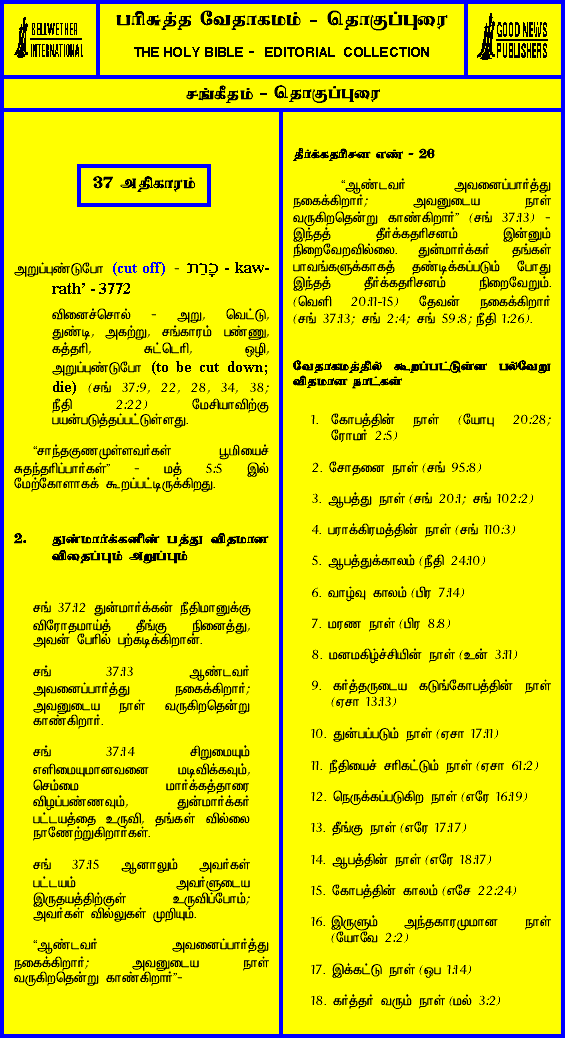 BELLWETHER
INTERNATIONAL
பரிசுத்த வேதாகமம் - தொகுப்புரை
THE HOLY BIBLE - EDITORIAL COLLECTION
GOOD NEWS
PUBLISHERS
சங்கீதம் - தொகுப்புரை
37 அதிகாரம்
அறுப்புண்டுபோ (cut off) - כָּרַת - kaw-
rath' - 3772
வினைச்சொல் - அறு, வெட்டு,
துண்டி, அகற்று, சங்காரம் பண்ணு,
கத்தரி, சுட்டெரி, ஒழி,
அறுப்புண்டுபோ (to be cut down;
die) (சங் 37:9, 22, 28, 34, 38;
நீதி 2:22) மேசியாவிற்கு
பயன்படுத்தப்பட்டுள்ளது.
“சாந்தகுணமுள்ளவர்கள் பூமியைச்
சுதந்தரிப்பார்கள்” - மத் 5:5 இல்
மேற்கோளாகக் கூறப்பட்டிருக்கிறது.
2. துன்மார்க்கனின் பத்து விதமான
விதைப்பும் அறுப்பும்
சங் 37:12 துன்மார்க்கன் நீதிமானுக்கு
விரோதமாய்த் தீங்கு நினைத்து,
அவன் பேரில் பற்கடிக்கிறான்.
சங் 37:13 ஆண்டவர்
அவனைப்பார்த்து நகைக்கிறார்;
அவனுடைய நாள் வருகிறதென்று
காண்கிறார்.
சங் 37:14 சிறுமையும்
எளிமையுமானவனை மடிவிக்கவும்,
செம்மை மார்க்கத்தாரை
விழப்பண்ணவும், துன்மார்க்கர்
பட்டயத்தை உருவி, தங்கள் வில்லை
நாணேற்றுகிறார்கள்.
சங் 37:15 ஆனாலும் அவர்கள்
பட்டயம் அவர்ளுடைய
இருதயத்திற்குள் உருவிப்போம்;
அவர்கள் வில்லுகள் முறியும்.
“ஆண்டவர் அவனைப்பார்த்து
நகைக்கிறார்; அவனுடைய நாள்
வருகிறதென்று காண்கிறார்”-
தீர்க்கதரிசன எண் - 26
“ஆண்டவர் அவனைப்பார்த்து
நகைக்கிறார்; அவனுடைய நாள்
வருகிறதென்று காண்கிறார்” (சங் 37:13) -
இந்தத் தீர்க்கதரிசனம் இன்னும்
நிறைவேறவில்லை. துன்மார்க்கர் தங்கள்
பாவங்களுக்காகத் தண்டிக்கப்படும் போது
இந்தத் தீர்க்கதரிசனம் நிறைவேறும்.
(வெளி 20:11-15) தேவன் நகைக்கிறார்
(சங் 37:13; சங் 2:4; சங் 59:8; நீதி 1:26).
வேதாகமத்தில் கூறப்பட்டுள்ள பல்வேறு
விதமான நாட்கள்
1. கோபத்தின் நாள் (யோபு 20:28;
ரோமர் 2:5)
2. சோதனை நாள் (சங் 95:8)
3. ஆபத்து நாள் (சங் 20:1; சங் 102:2)
4. பராக்கிரமத்தின் நாள் (சங் 110:3)
5. ஆபத்துக்காலம் (நீதி 24:10)
6. வாழ்வு காலம் (பிர 7:14)
7. மரண நாள் (பிர 8:8)
8. மனமகிழ்ச்சியின் நாள் (உன் 3:11)
9. கர்த்தருடைய கடுங்கோபத்தின் நாள்
(ஏசா 13:13)
10. துன்பப்படும் நாள் (ஏசா 17:11)
11. நீதியைச் சரிகட்டும் நாள் (ஏசா 61:2)
12. நெருக்கப்படுகிற நாள் (எரே 16:19)
13. தீங்கு நாள் (எரே 17:17)
14. ஆபத்தின் நாள் (எரே 18:17)
15. கோபத்தின் காலம் (எசே 22:24)
16. இருளும் அந்தகாரமுமான நாள்
(யோவே 2:2)
17. இக்கட்டு நாள் (ஒப 1:14)
18. கர்த்தர் வரும் நாள் (மல் 3:2)